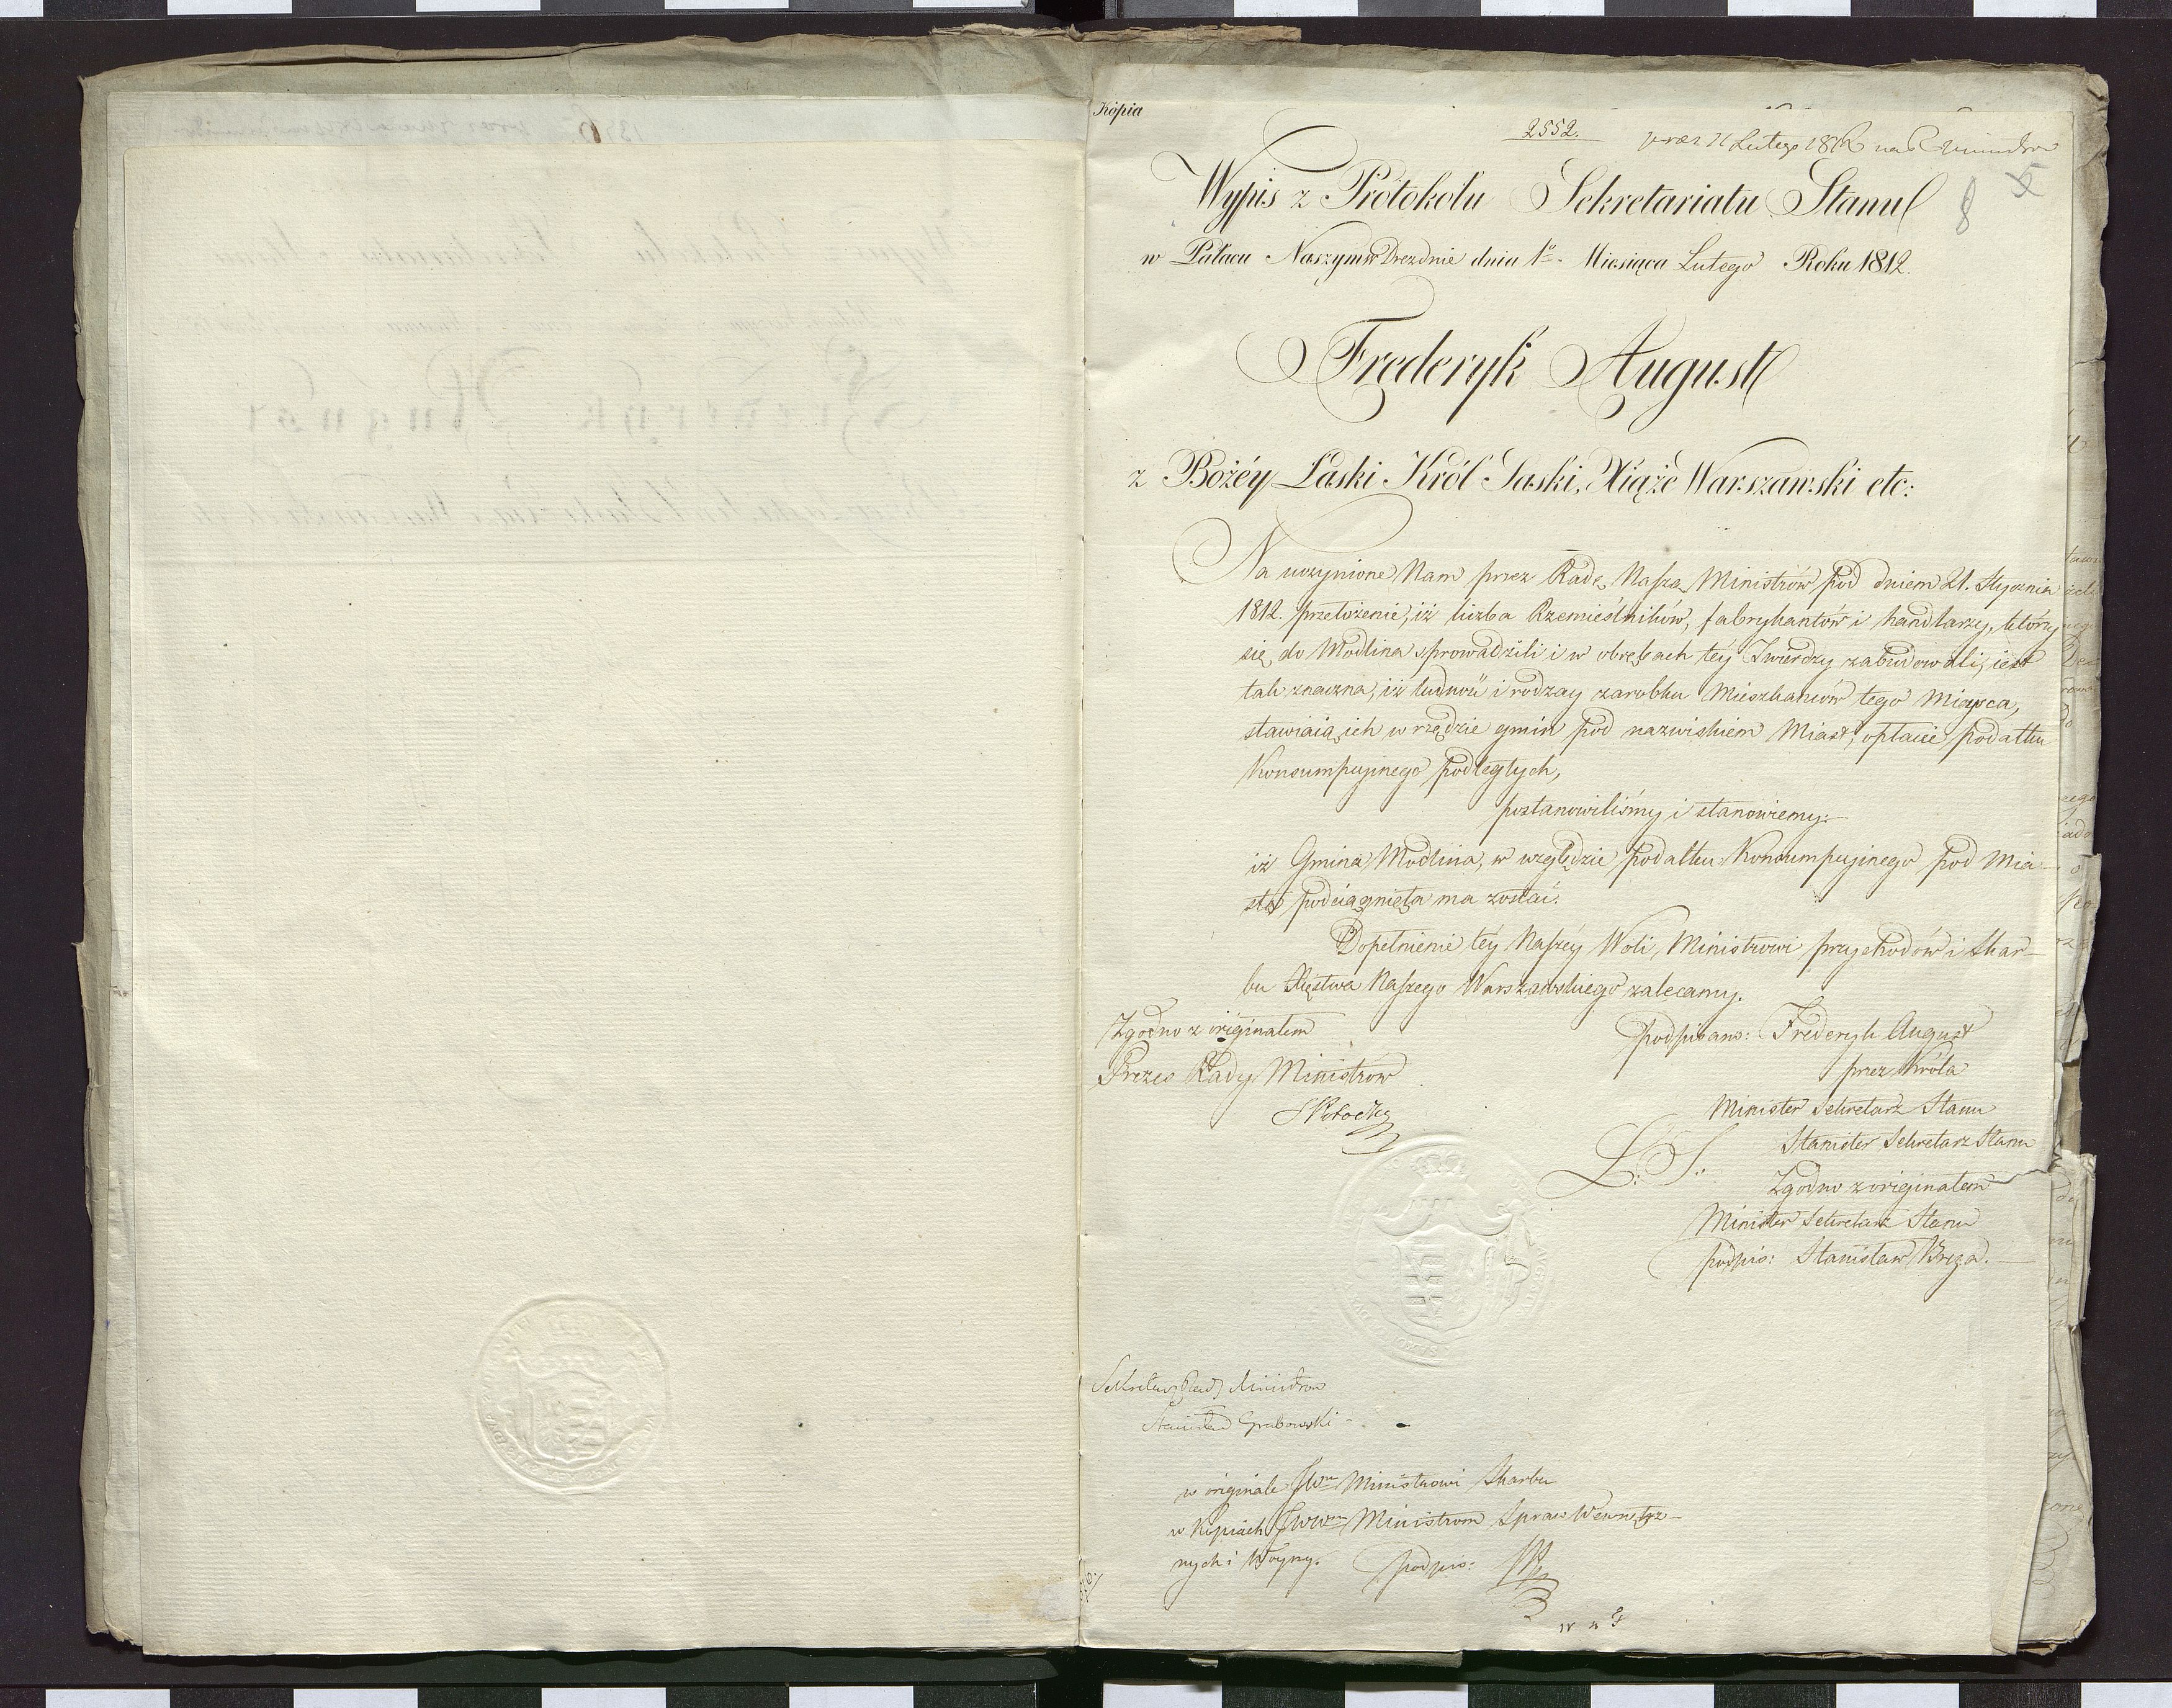 Kópia
2552.
praes 11 Lutego 1812
8 5
Wypis z Protokołu Sekretariatu Stanu
w Pałacu Naszym w Dreznie dnia 1º Miesiąca Lutego Roku 1812.
Frederyk August
z Bożéy Łaski Król Saski, Xiąże Warszawski etc:
Na uczynione Nam przez Radę Naszą Ministrów pod dniem 21. Stycznia
1812. przełożenie, iż liczba Rzemieślników, fabrykantów i handlarzy, którzy
się do Modlina sprowadzili i w obrębach téy Twierdzy zabudowali, iest
tak znaczna, iż ludność i rodzay zarobku Mieszkańców tego Mieysca,
stawiaią ich w rzędzie gmin pod nazwiskiem Miast, opłacie podatku
Konsumpcyinego podległych,
postanowiliśmy i stanowiemy:
iż Gmina Modlina, w względzie podatku Konsumpcyinego pod Mia-
sta podciągnięta ma zostać.
Dopełnienie téy Naszéy Woli, Ministrowi przychodów i Skar-
bu Xięstwa Naszego Warszawskiego zalecamy.
Zgodno z originałem
podpisano: Frederyk August
Prezes Rady Ministrów
przez Króla
SPotocki
Minister Sekretarz Stanu
L: S:
Stanister Sekretarz Stanu
Zgodno z originałem
Minister Sekretarz Stanu
podpis: Stanisław Breza.
Sekretarz Rady Ministrow
Stanisław Grabowski
w originale JWmu Ministrowi Skarbu
w Kopiach JWWm Ministrom Spraw Wewnętrz-
nych i Woyny. podpis: